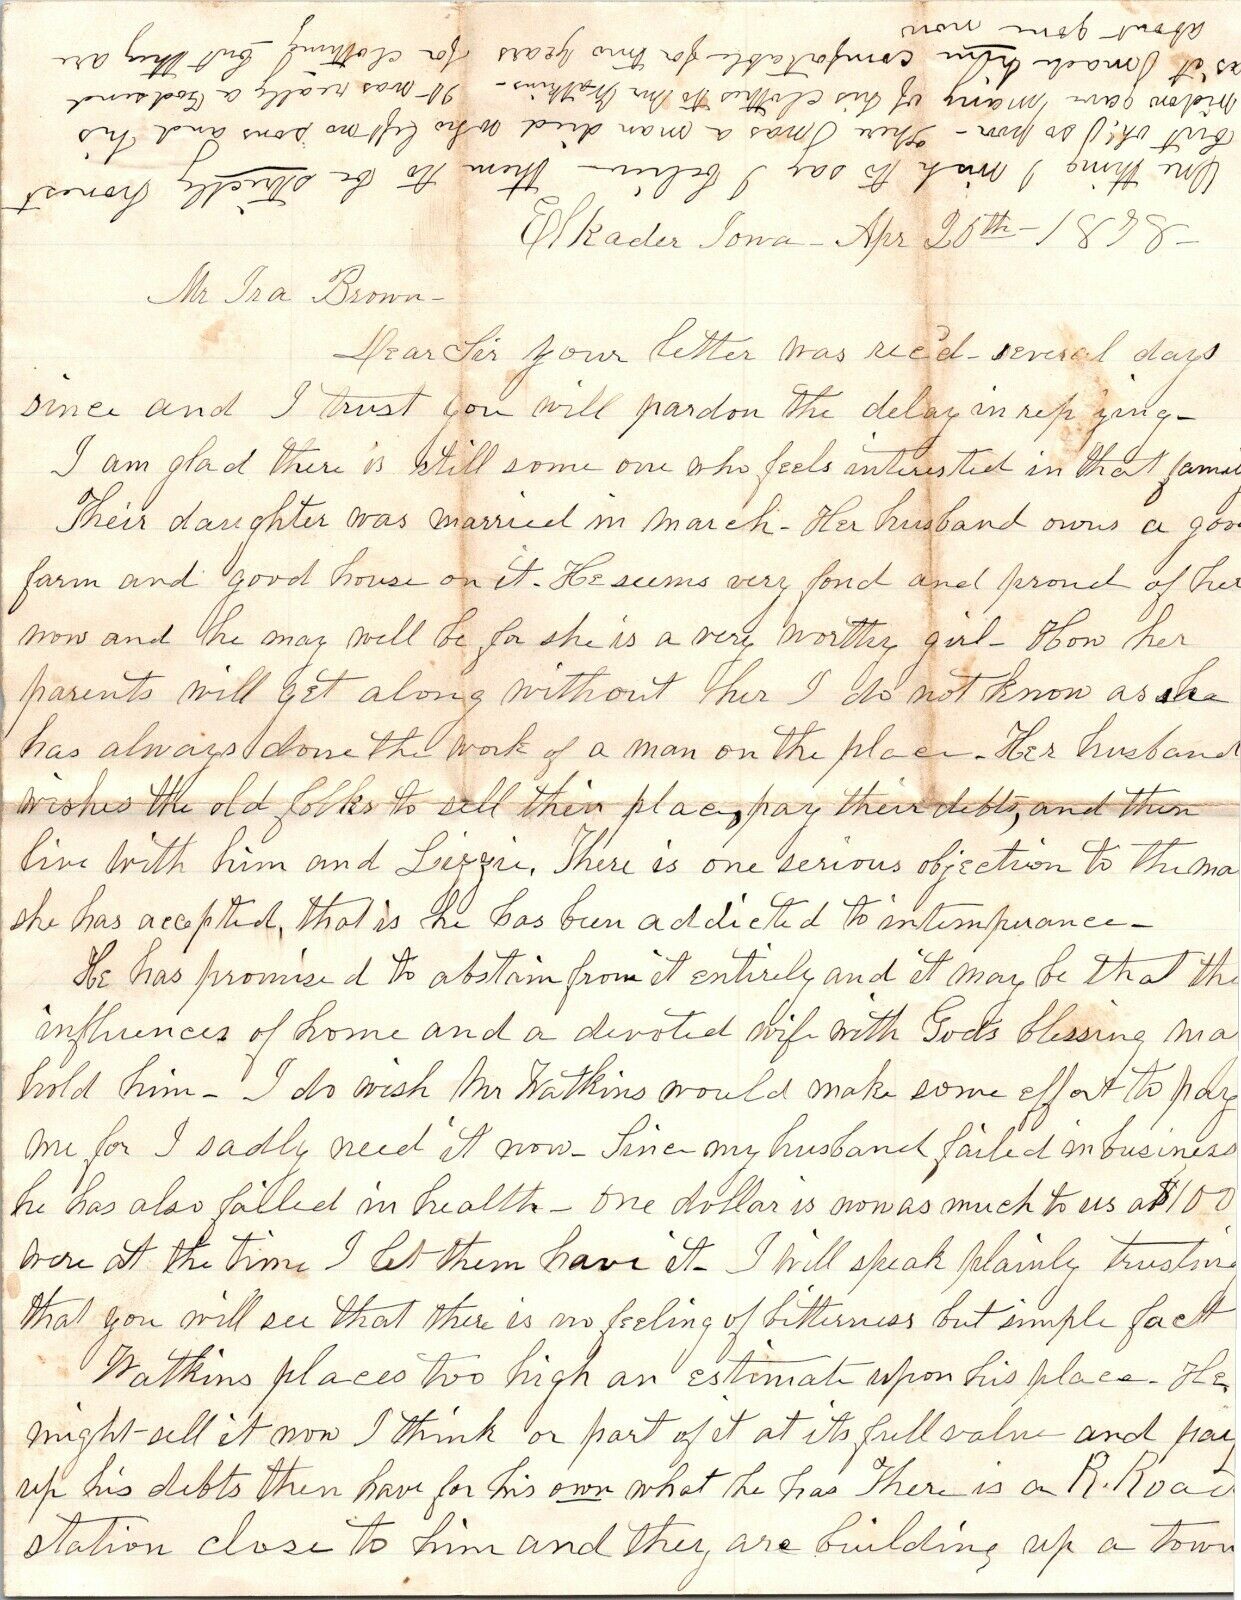 One thing I wish to say I believe them to be strictly honest
but oh! so poor - There was a man died who left no sons and his
widow gave many of his clothes to Mr Watkins - It was really a Godsend
as it made him comfortable for two years for clothing but they are
about gone now
Elkader Iowa - Apr 20th - 188 -
Mr Ira Brown -
Dear Sir your letter was rec'd - several days
since and I trust you will pardon the delay in rep'ying -
I am glad there is still some one who feels interested in that famil
Their daughter was married in march - Her husband owns a goo
farm and good house on it - He seems very fond and proud of her
now and he may well be for she is a very worthy girl - How her
parents will get along without her I do not know as she
has always done the work of a man on the place - Her husband
wishes the old folks to sell their place, pay their debts, and then
live with him and Lizzie. There is one serious objection to the ma
she has accepted, that is he has been addicted to intemperance -
He has promised to abstain from it entirely and it may be that the
influences of home and a devoted wife with God's blessing ma
hold him - I do wish Mr Watkins would make some effort to pay
me for I sadly need it now - Since my husband failed in business
he has also failed in health - One dollar is now as much to us as $100
were at the time I let them have it - I will speak plainly trusting
that you will see that there is no feeling of bitterness but simple fact
Watkins places too high an estimate upon his place - He
might sell it now I think or part of it at its full value and pay
up his debts then have for his own what he has There is a R. Road
station close to him and they are building up a town